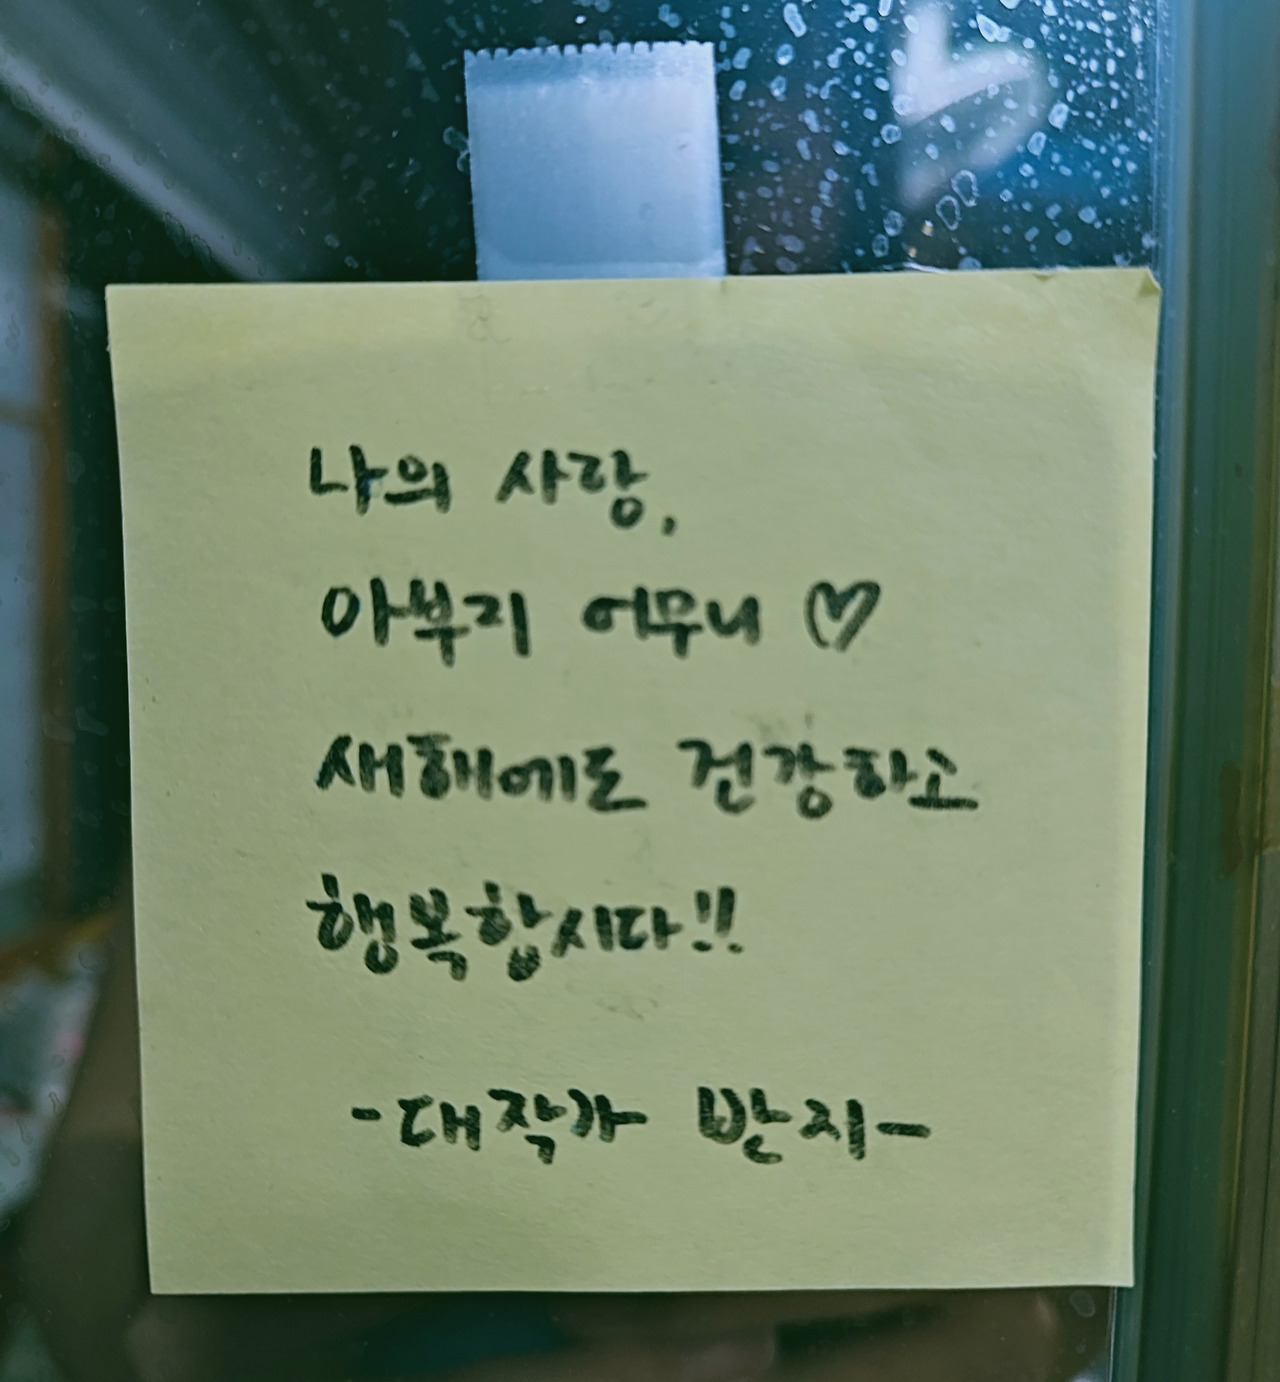 나의 사랑,
아부지 어무니 ♡
새해에도 건강하고
행복합시다!!
-대작가 반지-